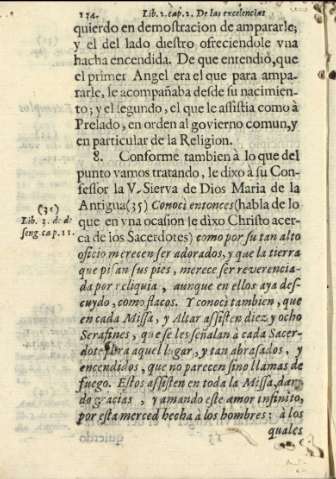 134. Lib. 2. cap. 2. De las excelencias
quierdo en demostracion de ampararle;
y el del lado diestro ofreciendole vna
hacha encendida. De que entendiò, que
el primer Angel era el que para ampa-
rarle, le acompañaba desde su nacimien-
to; y el segundo, el que le assistia como à
Prelado, en orden al govierno comun, y
en particular de la Religion.
8. Conforme tambien à lo que del
punto vamos tratando, le dixo à su Con-
fessor la V. Sierva de Dios Maria de la
Antigua (35) Conocì entonces (habla de lo
que en vna ocasion le dixo Christo acer-
ca de los Sacerdotes) como por su tan alto
oficio merecen ser adorados, y que la tierra
que pisan sus pies, merece ser reverencia-
da por reliquia, aunque en ellos aya des-
cuydo, como flacos. Y conocì tambien, que
en cada Missa, y Altar assisten diez y ocho
Serafines, que se les señalan à cada Sacer-
dote para aquel lugar, y tan abrasados, y
encendidos, que no parecen sino llamas de
fuego. Estos assisten en toda la Missa, dan-
do gracias, y amando este amor infinito,
por esta merced hecha à los hombres; à los
quales
Lib. 3. de de
seng. cap. 11.